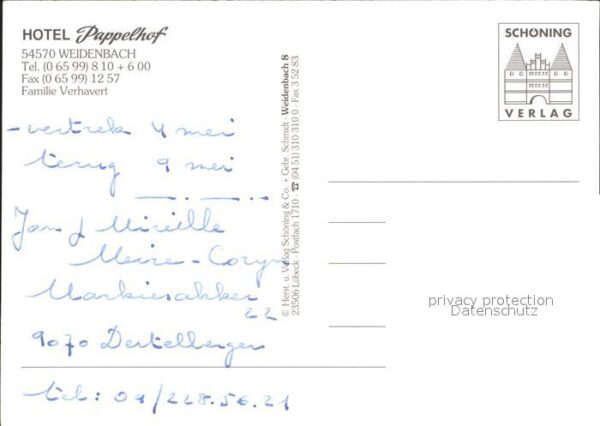 HOTEL Pappelhof
54570 WEIDENBACH
Tel. (0 65 99) 8 10 + 6 00
Fax (0 65 99) 12 57
Familie Verhavert
- vertrek 4 mei
terug 9 mei
Jan & Mireille
Meire-Coryn
Markiesakker
22
9070 Destelbergen
tel: 09/228.56.21
© Herst. u. Verlag Schöning & Co. + Gebr. Schmidt · Weidenbach 8
23506 Lübeck · Postfach 1710 · ☎ (04 51) 310 310 0 · Fax 3 52 83
SCHÖNING
VERLAG
privacy protection
Datenschutz